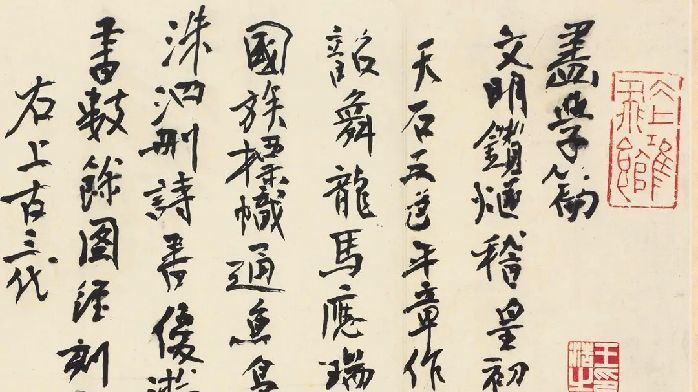 畫學篇
文明鑽燧稽皇初
天石五色平章作
韶舞龍馬應瑞
國族標幟通魚鳥
洙泗刪詩書優游
書數餘圖經刻
右上古三代